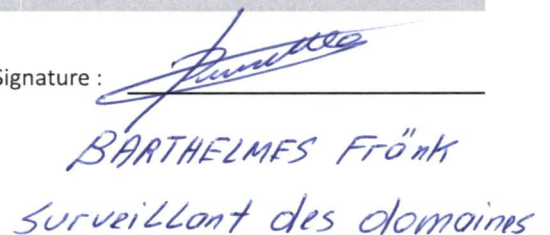 Signature :
BARTHELMES Frånk
surveillant des domaines